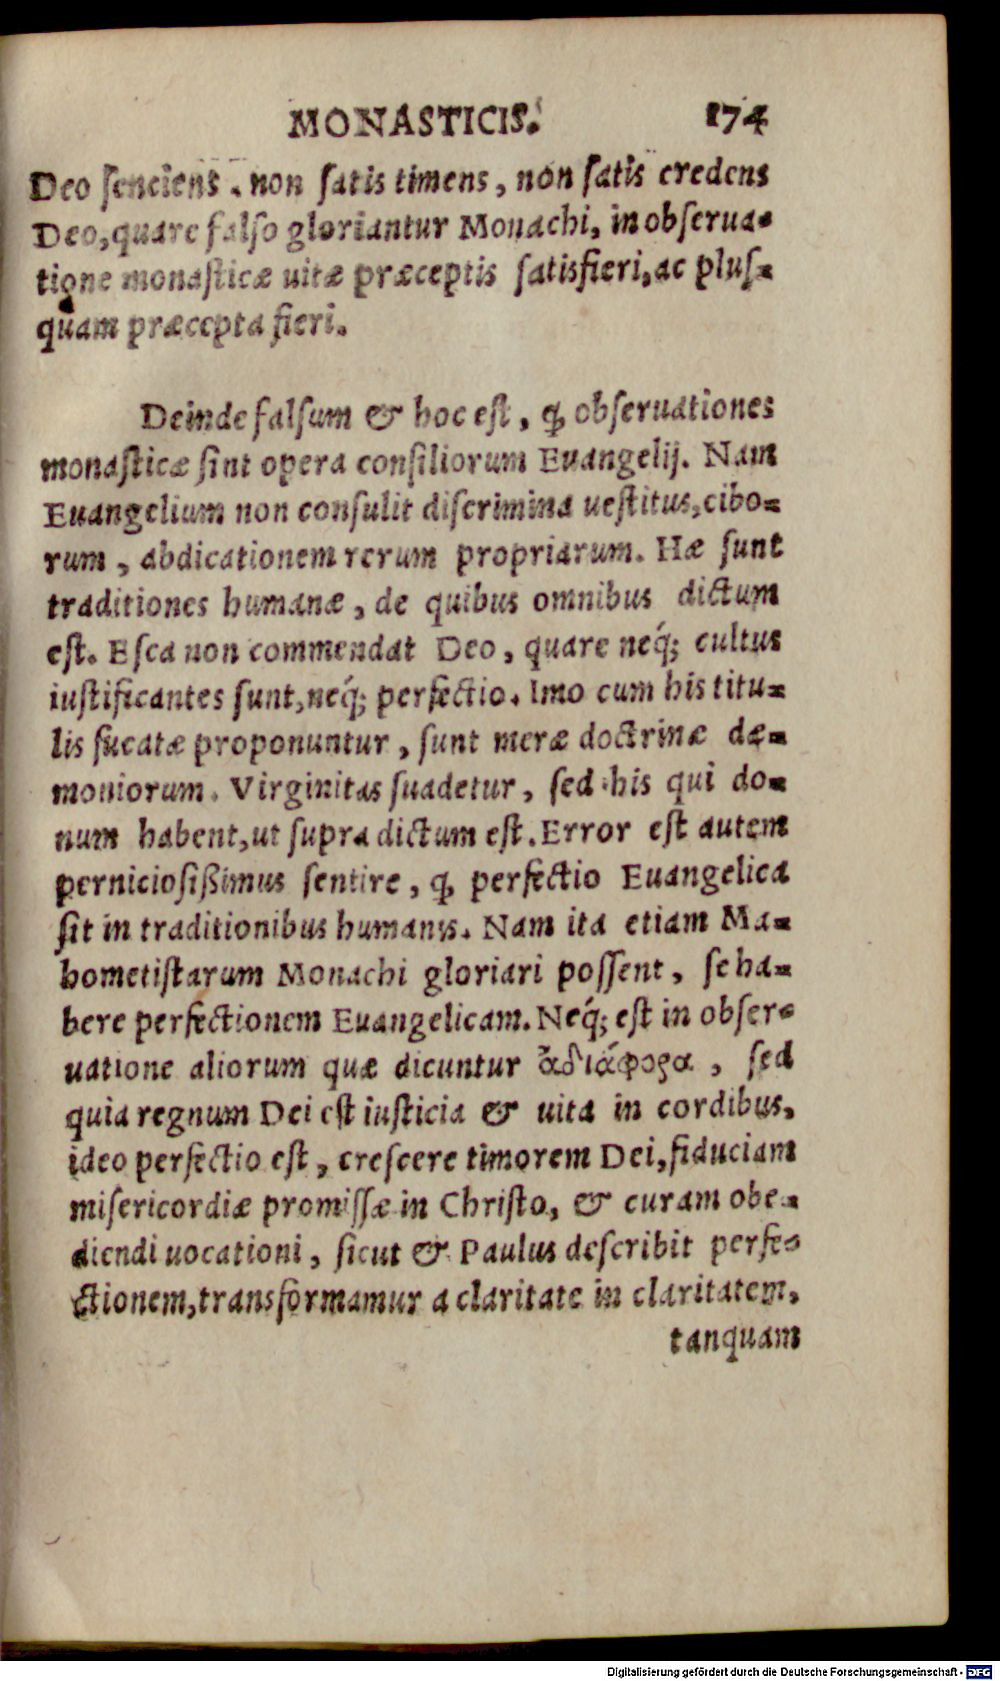 MONASTICIS. 174
Deo senciens, non satis timens, non satis credens
Deo, quare falso gloriantur Monachi, in obserua-
tione monasticæ uitæ præceptis satisfieri, ac plus-
quam præcepta fieri.
Deinde falsum & hoc est, ꝙ obseruationes
monasticæ sint opera consiliorum Euangelij. Nam
Euangelium non consulit discrimina uestitus, cibo-
rum, abdicationem rerum propriarum. Hæ sunt
traditiones humanæ, de quibus omnibus dictum
est. Esca non commendat Deo, quare neq́; cultus
iustificantes sunt, neq́; perfectio. Imo cum his titu-
lis fucatæ proponuntur, sunt meræ doctrinæ dæ-
moniorum. Virginitas suadetur, sed his qui do-
num habent, ut supra dictum est. Error est autem
perniciosißimus sentire, ꝙ perfectio Euangelica
sit in traditionibus humanis. Nam ita etiam Ma-
hometistarum Monachi gloriari possent, se ha-
bere perfectionem Euangelicam. Neq́; est in obser-
uatione aliorum quæ dicuntur ἀδιάφορα, sed
quia regnum Dei est iusticia & uita in cordibus,
ideo perfectio est, crescere timorem Dei, fiduciam
misericordiæ promissæ in Christo, & curam obe-
diendi uocationi, sicut & Paulus describit perfe-
ctionem, transformamur a claritate in claritatem,
tanquam
Digitalisierung gefördert durch die Deutsche Forschungsgemeinschaft - DFG